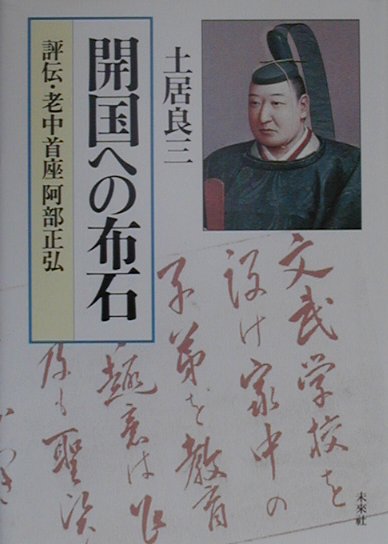 土居良三
開国への布石
評伝・老中首座 阿部正弘
文武学校を
設け家中の
子弟を教育
趣意は
聖
未來社